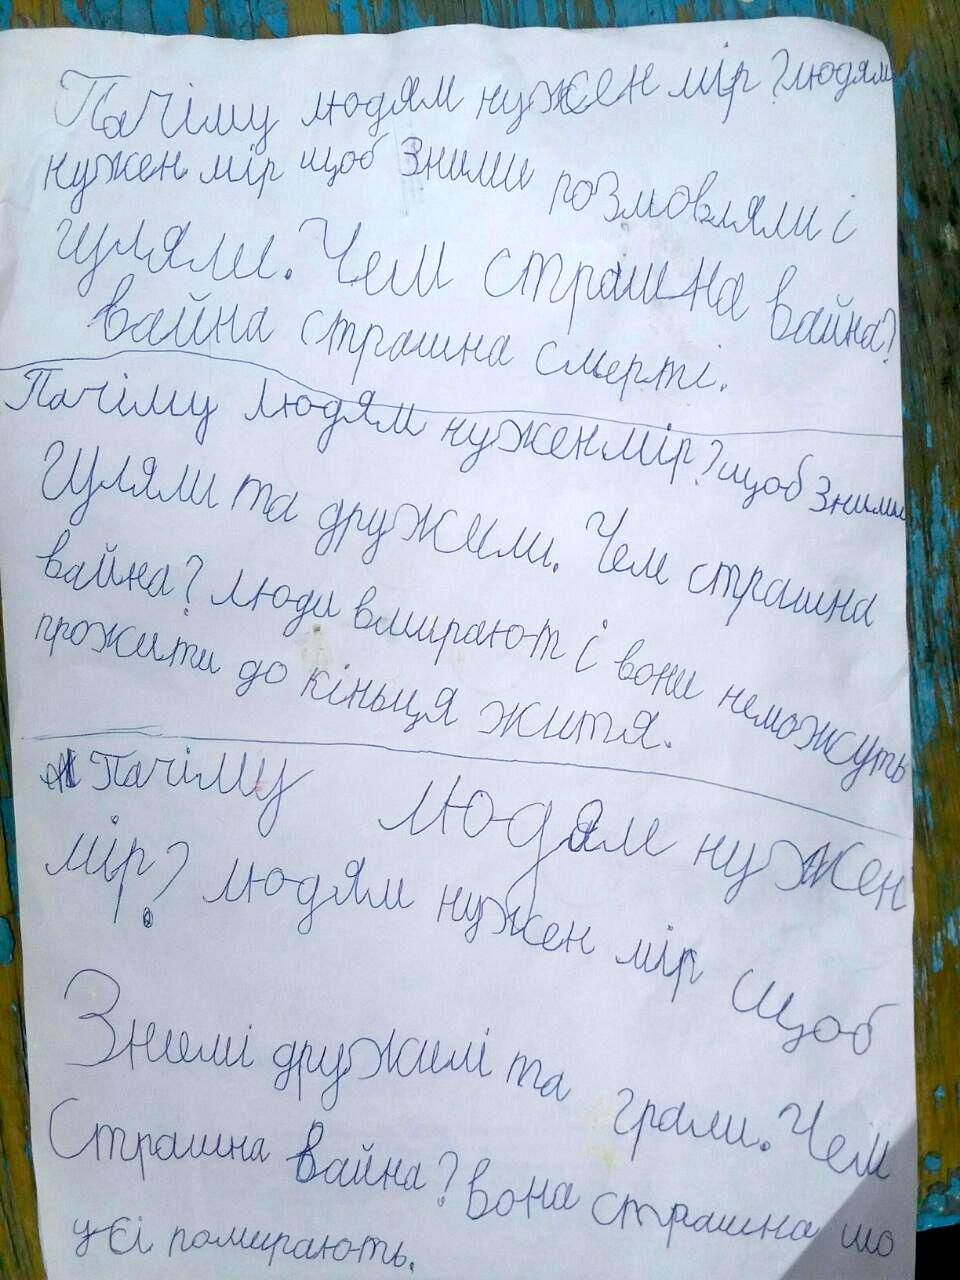 Пачіму людям нужен мір? людям
нужен мір щоб зними розмовляли і
гуляли. Чем страшна вайна?
вайна страшна смерті.
Пачіму людям нужен мір? щоб зними
гуляли та дружили. Чем страшна
вайна? люди вмирают і вони неможуть
прожити до кіньця житя.
Пачіму людям нужен
мір? людям нужен мір щоб
Знимі дружилі та грали. Чем
Страшна вайна? вона страшна шо
усі помирають.